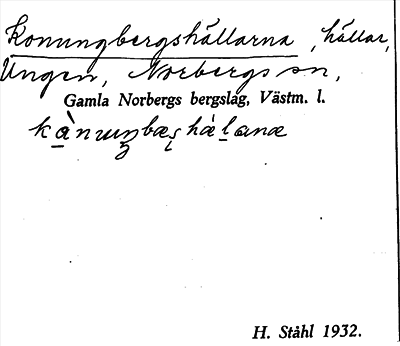 Konungbergshällarna, hällar,
Ungen, Norbergs sn,
Gamla Norbergs bergslag, Västm. l.
H. Ståhl 1932.